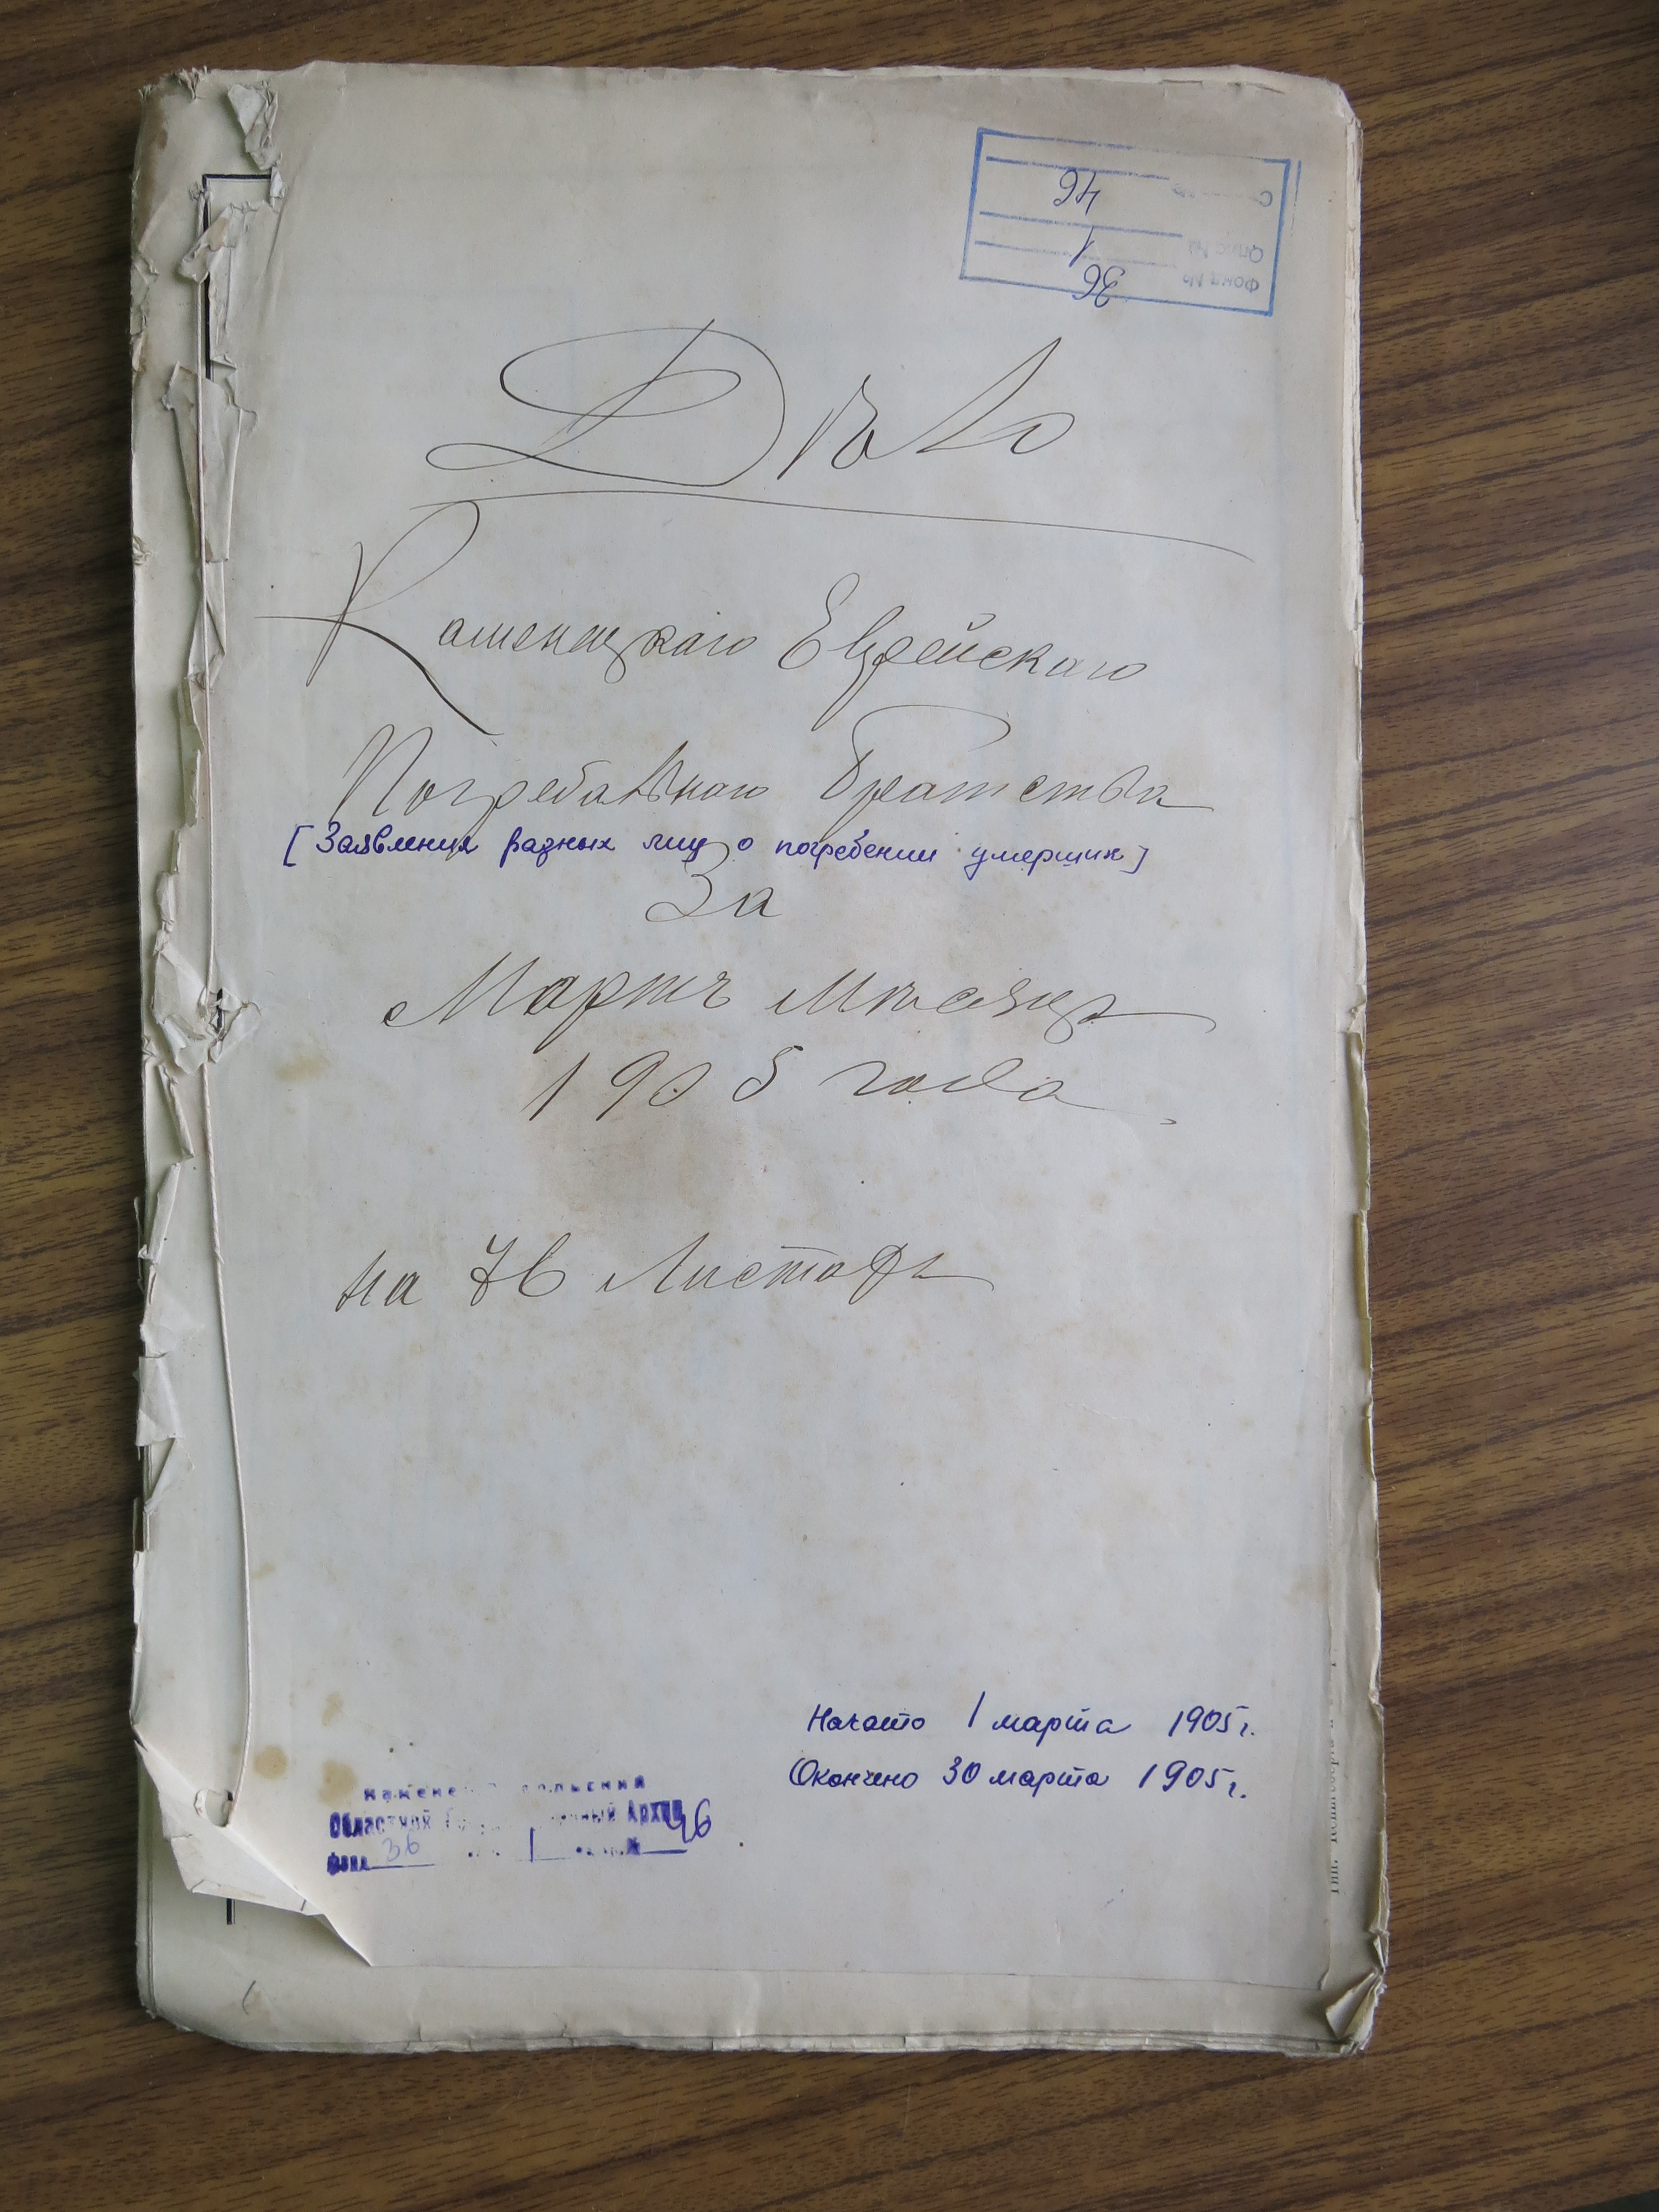 Фонд № 36
Опис № 1
46
Дѣло
Каменецкаго Еврейскаго
Погребальнаго Братства
[Заявления разных лиц о погребении умерших]
За
Мартъ Мѣсяцъ
1905 года
на 76 Листахъ
Начато 1 марта 1905 г.
Окончено 30 марта 1905 г.
Областной Архив
фонд 36 1 № 46